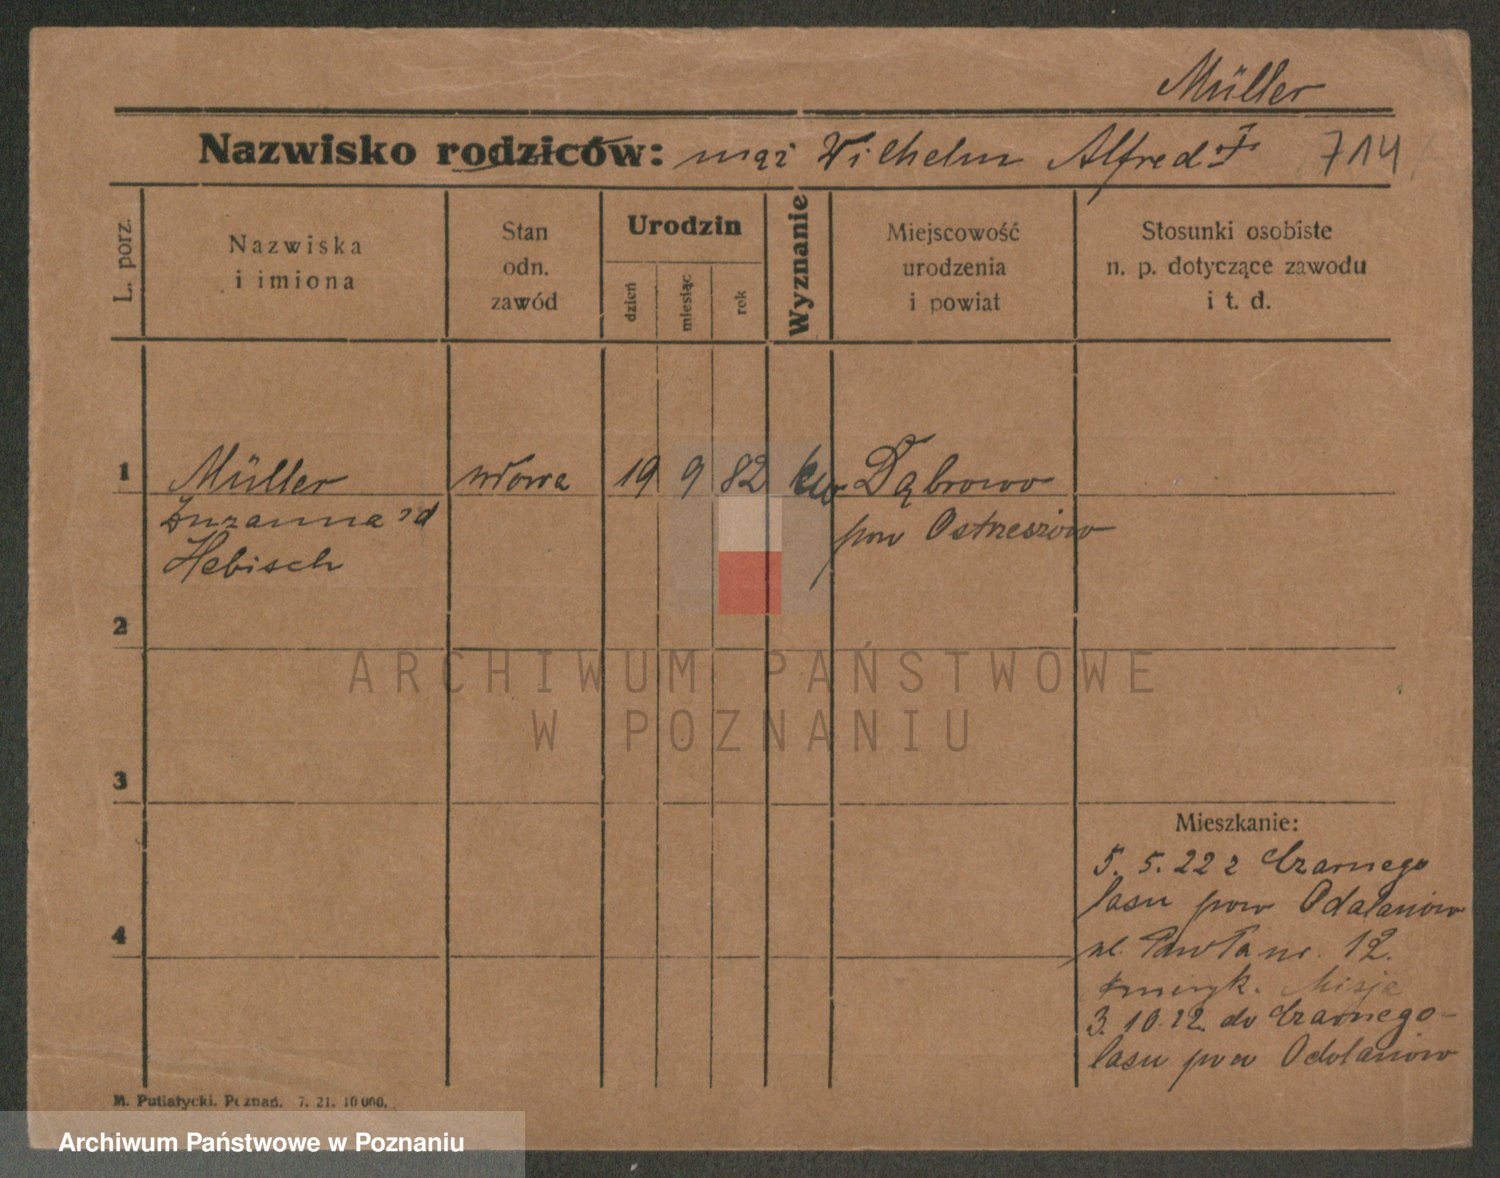 Müller
Nazwisko rodziców: mąż Wilhelm Alfred 714
L. porz.
Nazwiska
i imiona
Stan
odn.
zawód
Urodzin
dzień
miesiąc
rok
Wyznanie
Miejscowość
urodzenia
i powiat
Stosunki osobiste
n. p. dotyczące zawodu
i t. d.
1 Müller wdowa 19 9 82 ew Dąbrowo
Zuzanna zd pow Ostrzeszów
Hebisch
2
3
4
Mieszkanie:
5. 5. 22 z Czarnego
lasu pow Odalanów
ul. Pawła nr. 12.
Ameryk. Misja
3. 10. 22. do Czarnego-
lasu pow Odolanów
M. Putiatycki. Poznań. 7. 21. 10 000.
ARCHIWUM PAŃSTWOWE
W POZNANIU
Archiwum Państwowe w Poznaniu